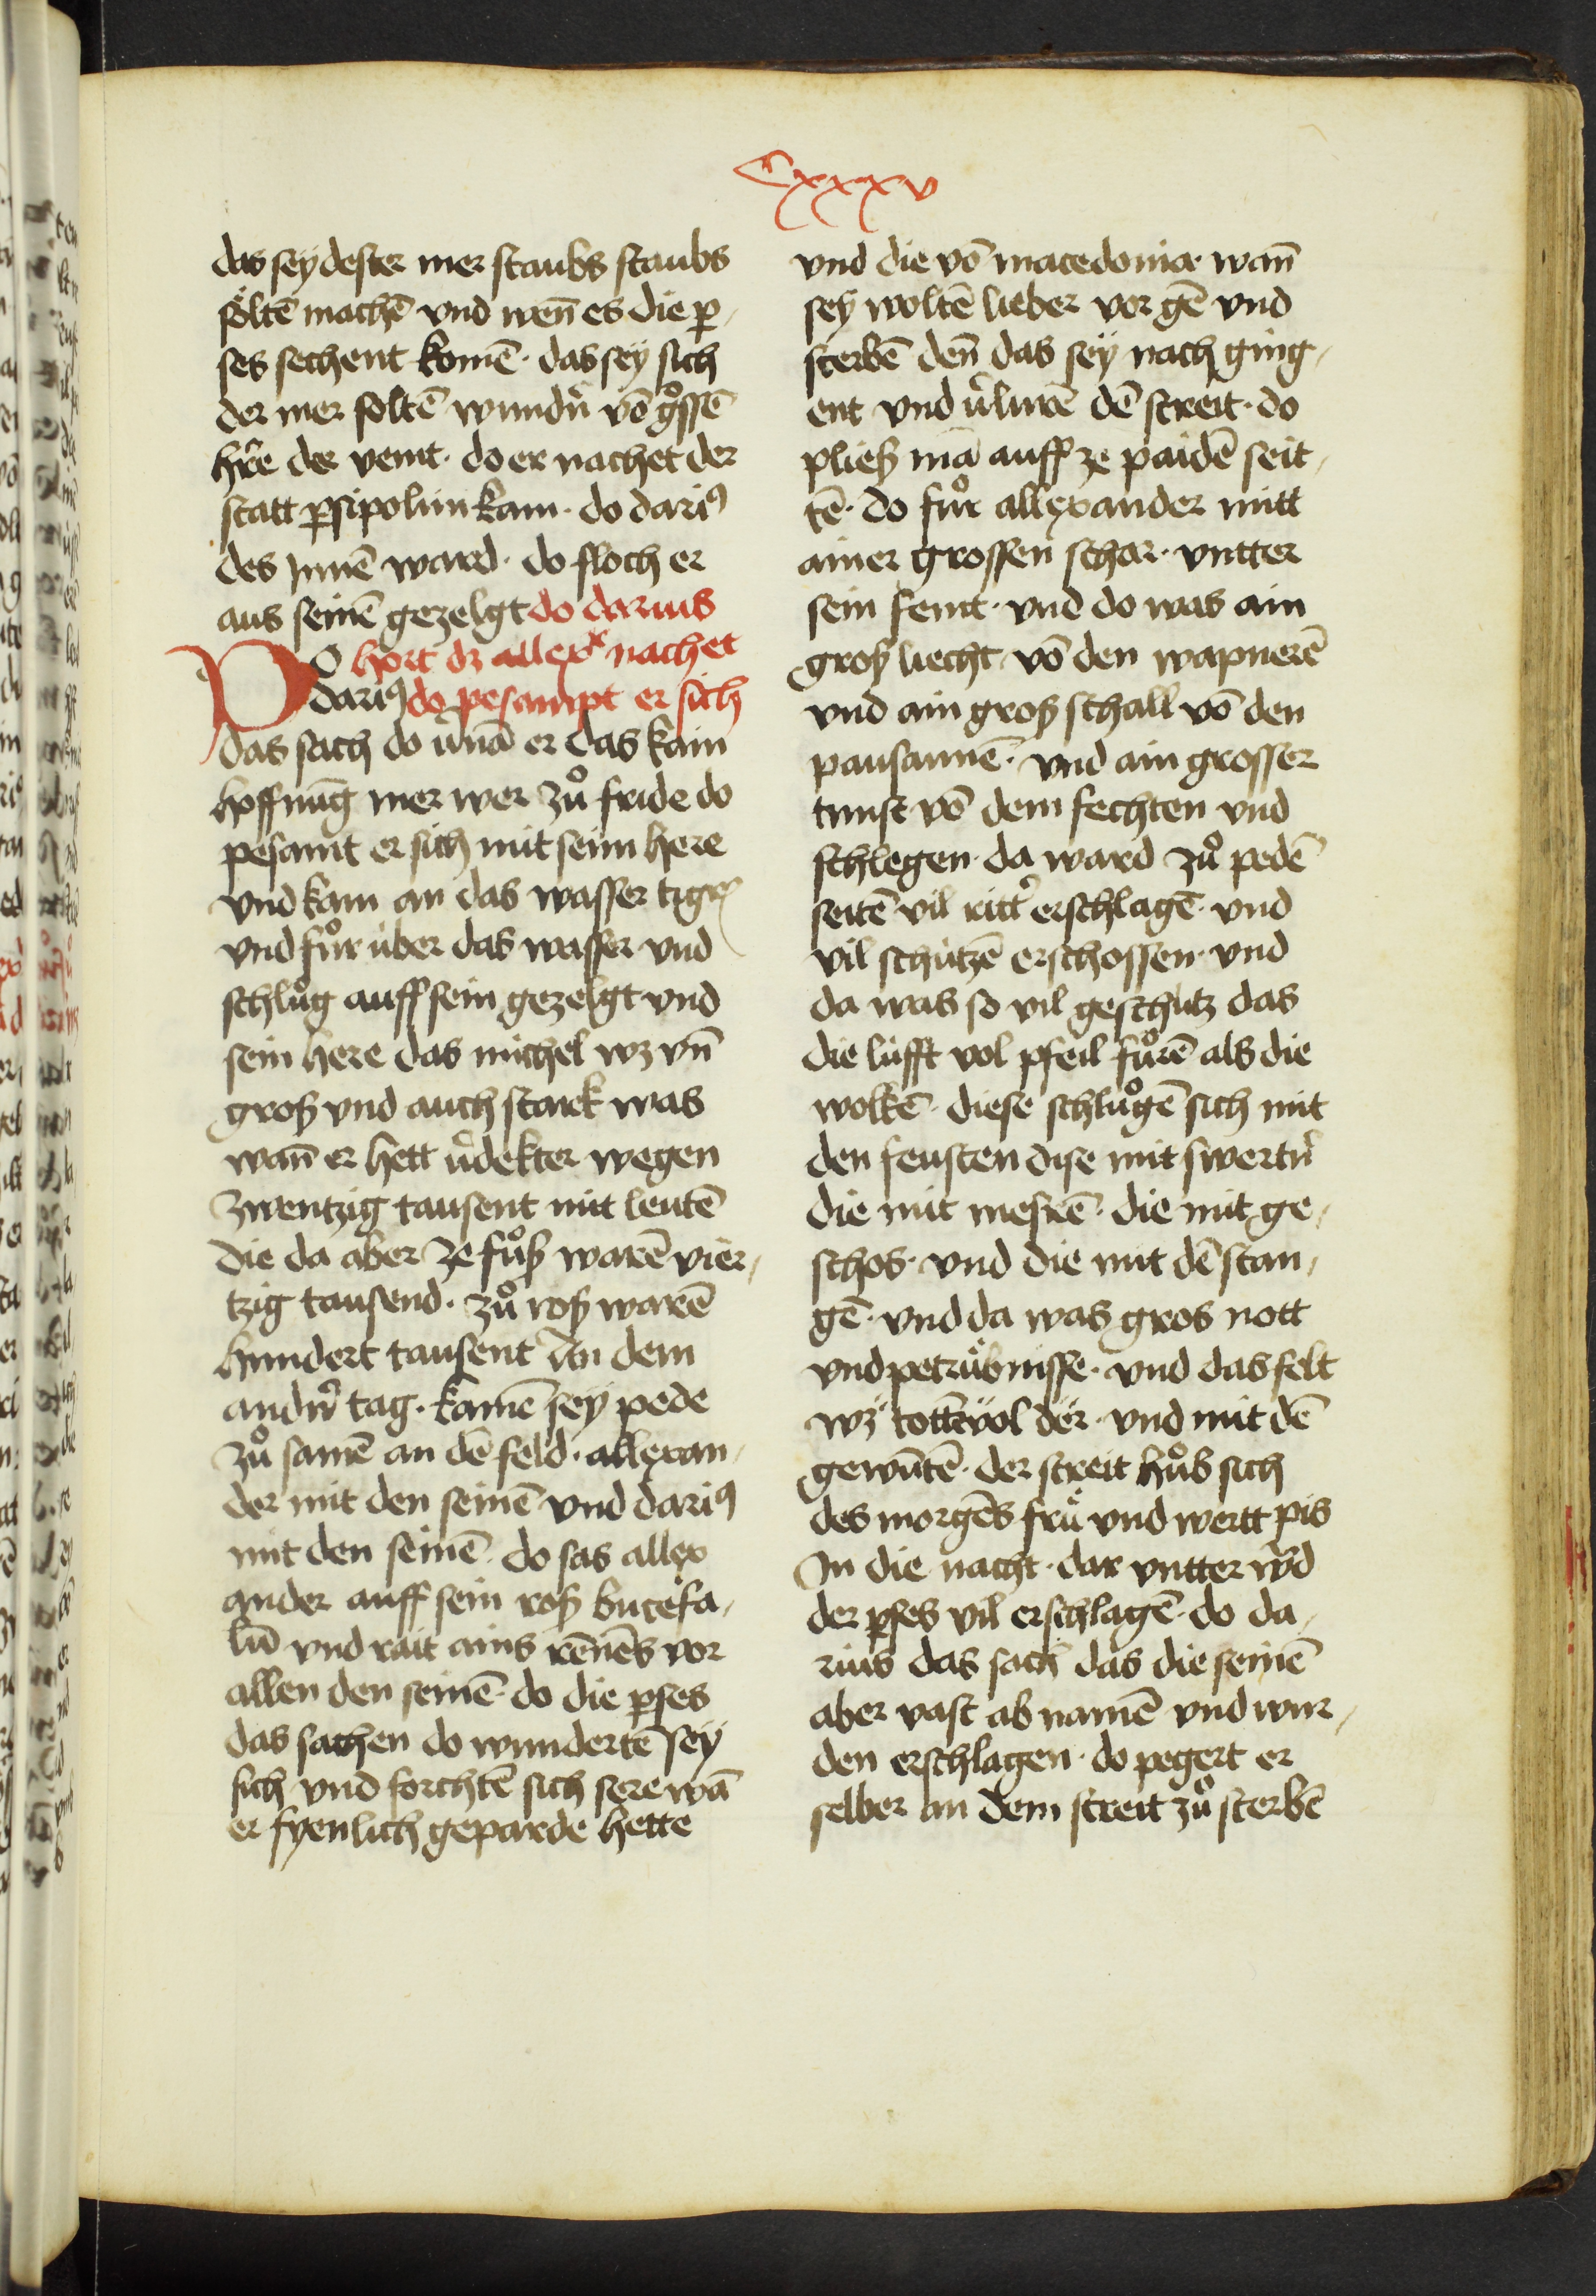 Cxxxv
das sey dester mer staubs staubs
sölten machē vnd wen̄ es die p̲
ses sechent komē · das sey sich
der mer soltē wundn̉ vō gͦssē
hr̄e der veint · do er nachet der
statt p̲sipolim kam · do dariꝰ
des Jnnē ward · do floch er
aus seinē gezelgt do darius
DO hort dz allexͬ nachet
dariꝰ do pesampt er sich
das sach do v̉nā er das kain
hoffnūg mer wer zuͦ fride do
pesamt er sich mit seim here
vnd kam an das wasser tigrꝭ
vnd fuͦr über das wasser vnd
schluͦg auff sein gezelgt vnd
sein here das michel wz vn̄
groß vnd auch stark was
wan̄ er hett v̉dekter wegen
zwentzig tausent mit leutē
die da aber ze fuͦß warē vier,
tzig tausend · zuͦ roß warē
hundert tausent An dem
andn̉ tag · kamē sey pede
zuͦ samē an dē feld · allexan,
der mit den seinē vnd dariꝰ
mit den seinē · do sas allex
ander auff sein roß bucefa,
lū vnd rait ains rēnēs vor
allen den seinē · do die p̲ses
das sachen do wundertē sey
sich vnd forchtē sich sere wā
er fyenlich geparde hette
vnd die vō macedonia wan̄
sey woltē lieber vor gē vnd
sterbē den̄ das sey nach ging,
ent vnd v̉lurē dē streit · do
pließ mā auff ze paidē seit,
tē · do fuͦr allexander mitt
ainer grossen schar · vntter
sein feint · vnd do was ain
groß liecht vō den wapnerē
vnd ain groß schall vō den
pausaunē · vnd ain grosser
tunst vō dem fechten vnd
schlegen · da ward zuͦ pedē
seitē vil ritt̉ erschlagē · vnd
vil schützē erschossen · vnd
da was so vil geschutz das
die lüfft vol pfeil fuͦrē als die
wolkē · diese schluͦgē sich mit
den feusten dise mit swertn̉
die mit mesrē · die mit ge,
schos · vnd die mit dē stan,
gē · vnd da was gros nott
vnd petrübnisse · vnd das felt
wz tottēvol dër · vnd mit dē
gewūtē · der streit huͦb sich
des morgēs frü vnd wertt pis
Jn die nacht · dar vntter w̉d
der p̲ses vil erschlagē · do da,
rius das sach das die seinē
aber vast ab namē vnd wur,
den erschlagen · do pegert er
selber an dem streit zuͦ sterbē